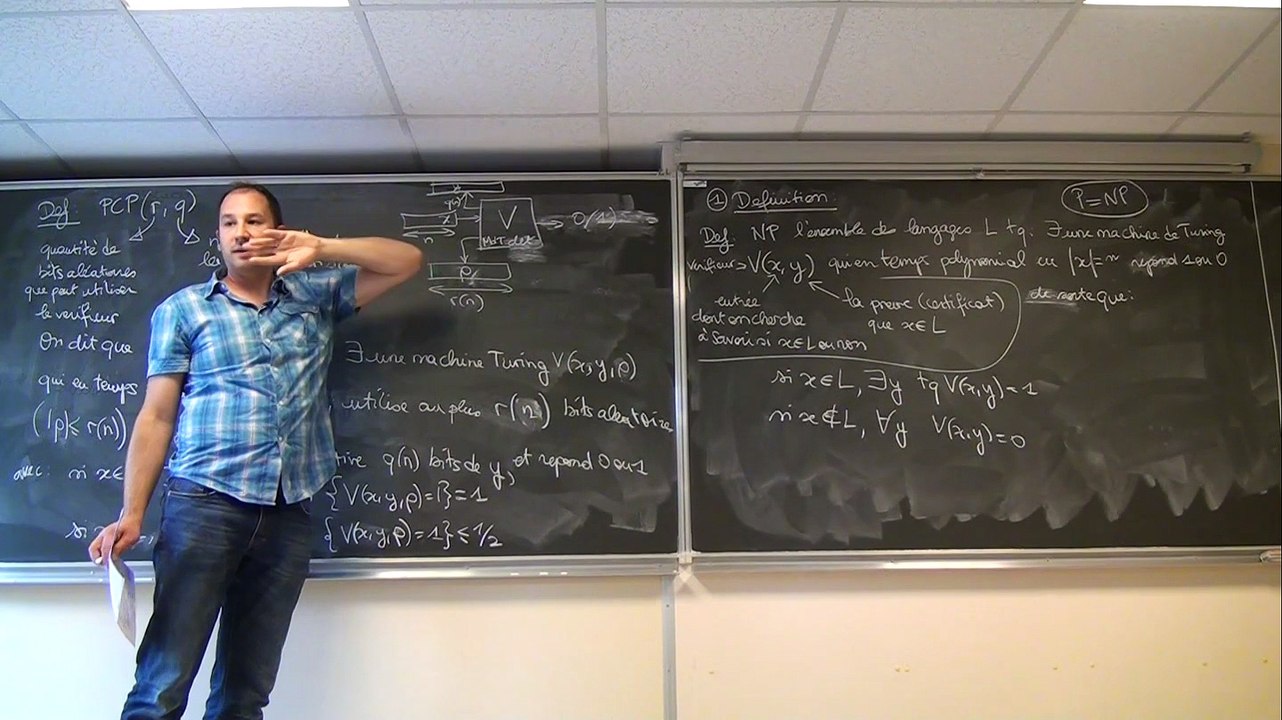 Def: PCP(r, q)
quantité de
bits aléatoires
que peut utiliser
le verifieur
On dit que
∃ une machine Turing V(x, y, ρ)
qui en temps
utilise au plus r(n) bits aleatoire
(|ρ| ≤ r(n))
q(n) bits de y, et repond 0 ou 1
avec: si x∈
{V(x,y,ρ)=1}=1
si
{V(x,y,ρ)=1} ≤ 1/2
y
x
n
V
MdT det
0/1
ρ
r(n)
① Definition:
P=NP
Def NP l'ensemble des langages L tq. ∃ une machine de Turing
verifieur → V(x, y) qui en temps polynomial en |x|=n repond 1 ou 0
de sorte que:
entrée
dont on cherche
à savoir si x∈L ou non
la preuve (certificat)
que x∈L
si x∈L, ∃y tq V(x,y)=1
si x∉L, ∀y V(x,y)=0